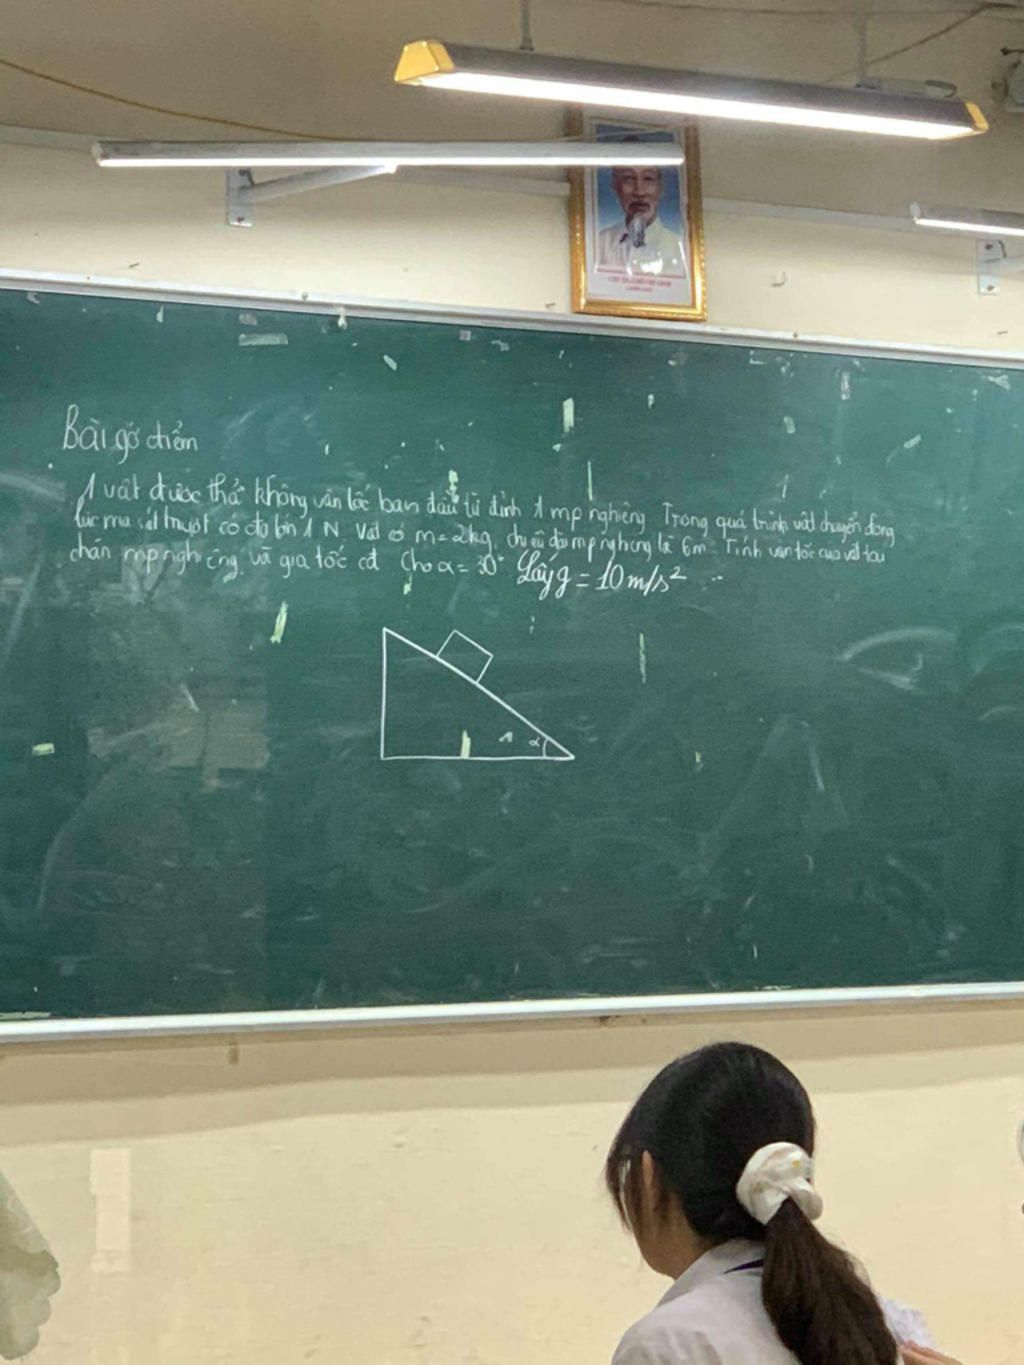 CHỦ TỊCH HỒ CHÍ MINH
Bài gỡ điểm
1 vật được thả không vận tốc ban đầu từ đỉnh 1 mp nghiêng Trong quá trình vật chuyển động
lực ma sát trượt có độ lớn 1 N. Vật có m = 2kg, chiều dài mp nghiêng là 6m. Tính vận tốc của vật tại
chân mp nghiêng và gia tốc Cho α = 30° Lấy g = 10 m/s²
α